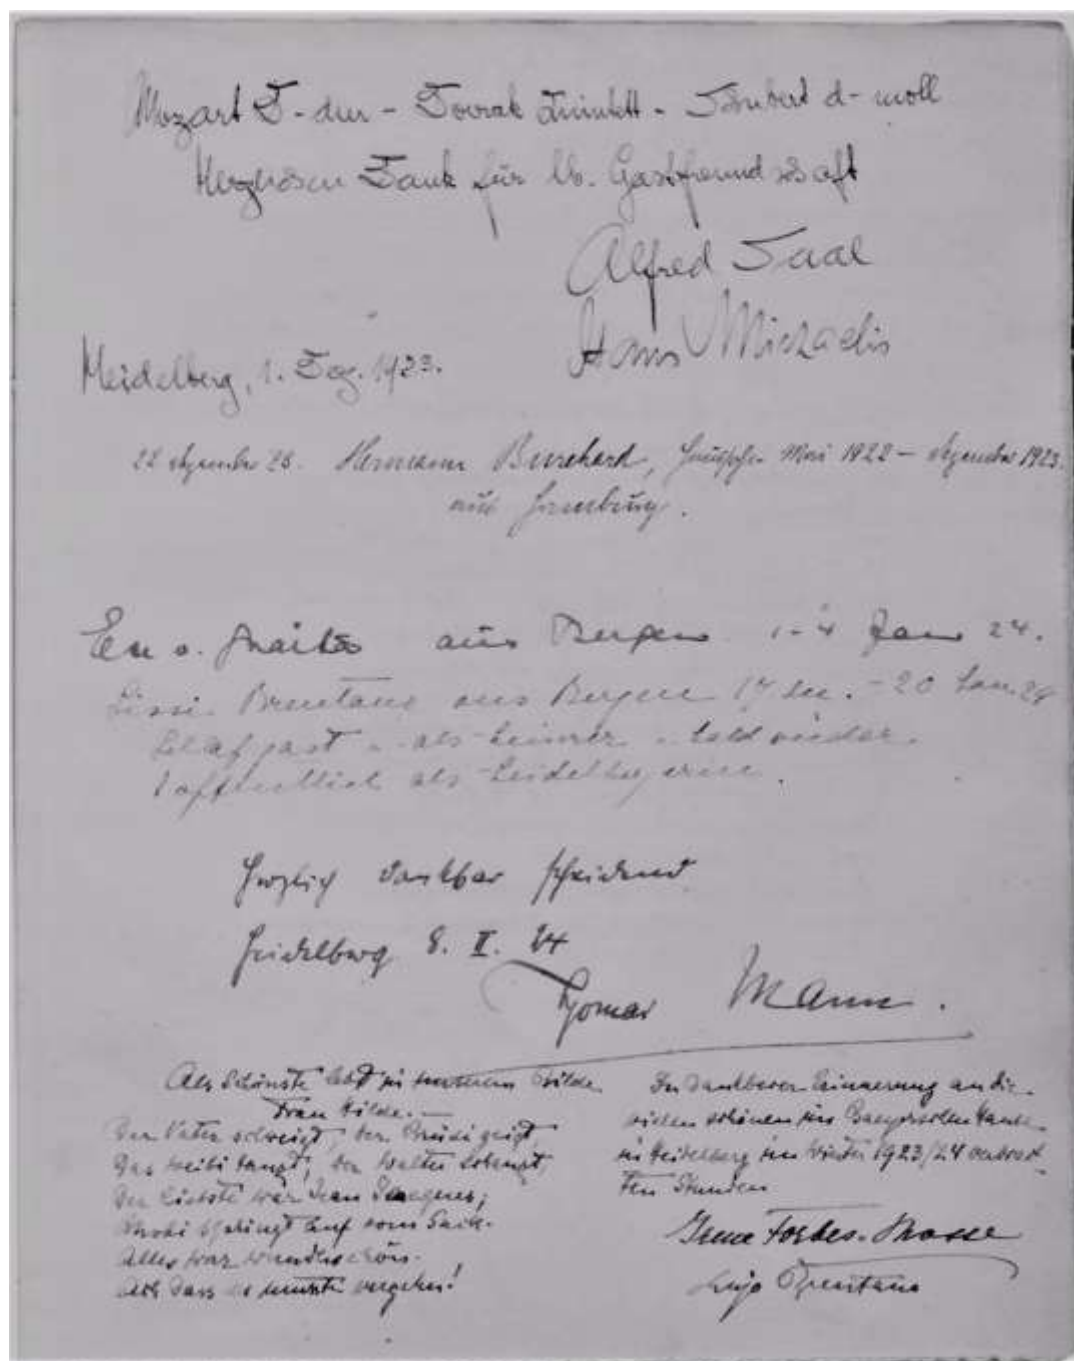 Mozart D-dur - Dvorak Quintett - Schubert d-moll
Herzlichen Dank für lb. Gastfreundschaft
Alfred Saal
Hans Michaelis
Heidelberg, 1. Dez. 1923.
22 Dezember 23. Hermann Burchard, Mai 1922 – Dezember 1923.
aus Hamburg.
aus Bergen 1-4 Jan 24.
Lissi Brentano aus Bergen 17 - 20 Jan. 24
als bald wieder.
hoffentlich als Heidelbergerin.
Herzlich dankbar scheidend
Heidelberg 8. II. 24
Thomas Mann.
Als Schönste lebt in unserem Bilde
Frau Hilde. —
Der Vater schweigt, der Bruder geigt,
Das tanzt, der Walter
Der Liebste war
springt auf vom
Alles war wunderschön.
Ach dass es musste vergehen!
In dankbarer Erinnerung an die
vielen schönen im
in Heidelberg im Winter 1923/24 verbrach-
ten Stunden
Irene Forbes-Mosse
Lujo Brentano